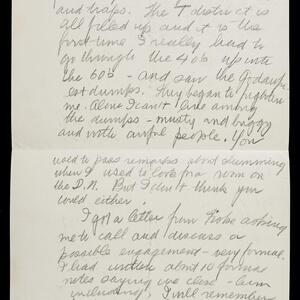 and traps. The T district is
all filled up and it is the
first time I really had to
go through the 40s up into
the 60s - and saw the Godawful-
est dumps. They began to frighten
me. Alone I can't live among
the dumps - musty and buggy
and with awful people. You
used to pass remarks about slumming
when I used to look for a room on
the D.N. But I don't think you
could either.
I got a letter from asking
me to call and discuss a
possible engagement - very formal.
I had written about 10 formal
notes saying we close -
including. I will remember